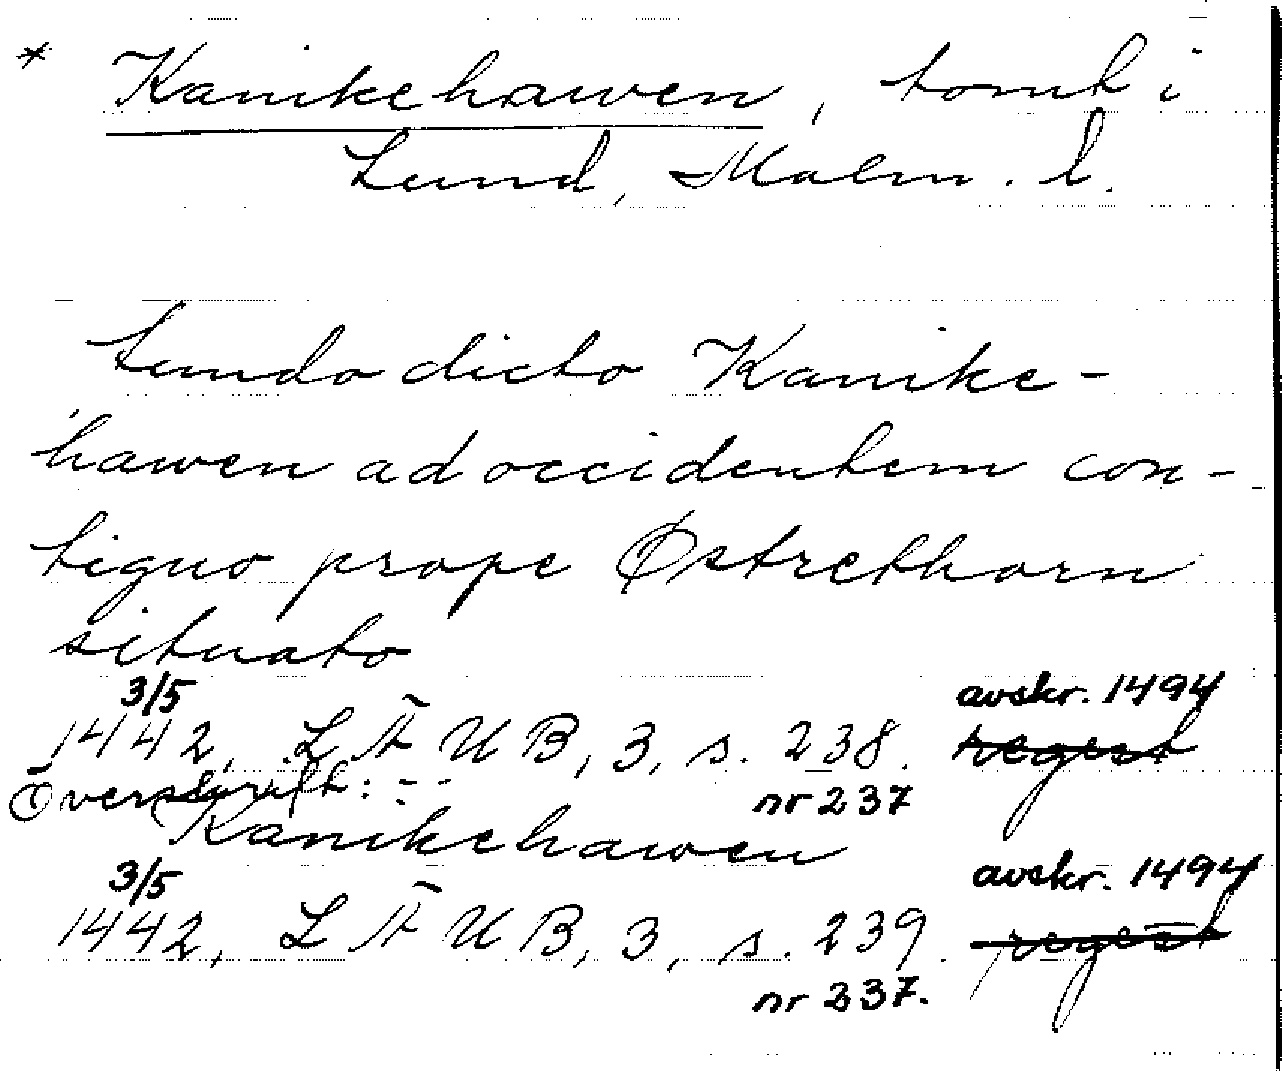 * Kanikehawen, tomt i
Lund, Malm. l.
fundo dicto Kanike-
hawen ad occidentem con-
tiguo prope Østrethorn
situato
3/5 avskr. 1494
1442, L Ä U B, 3, s. 238. regest
Överskrift: - - nr 237
Kanikehawen
3/5 avskr. 1494
1442, L Ä U B, 3, s. 239. regest
nr 237.